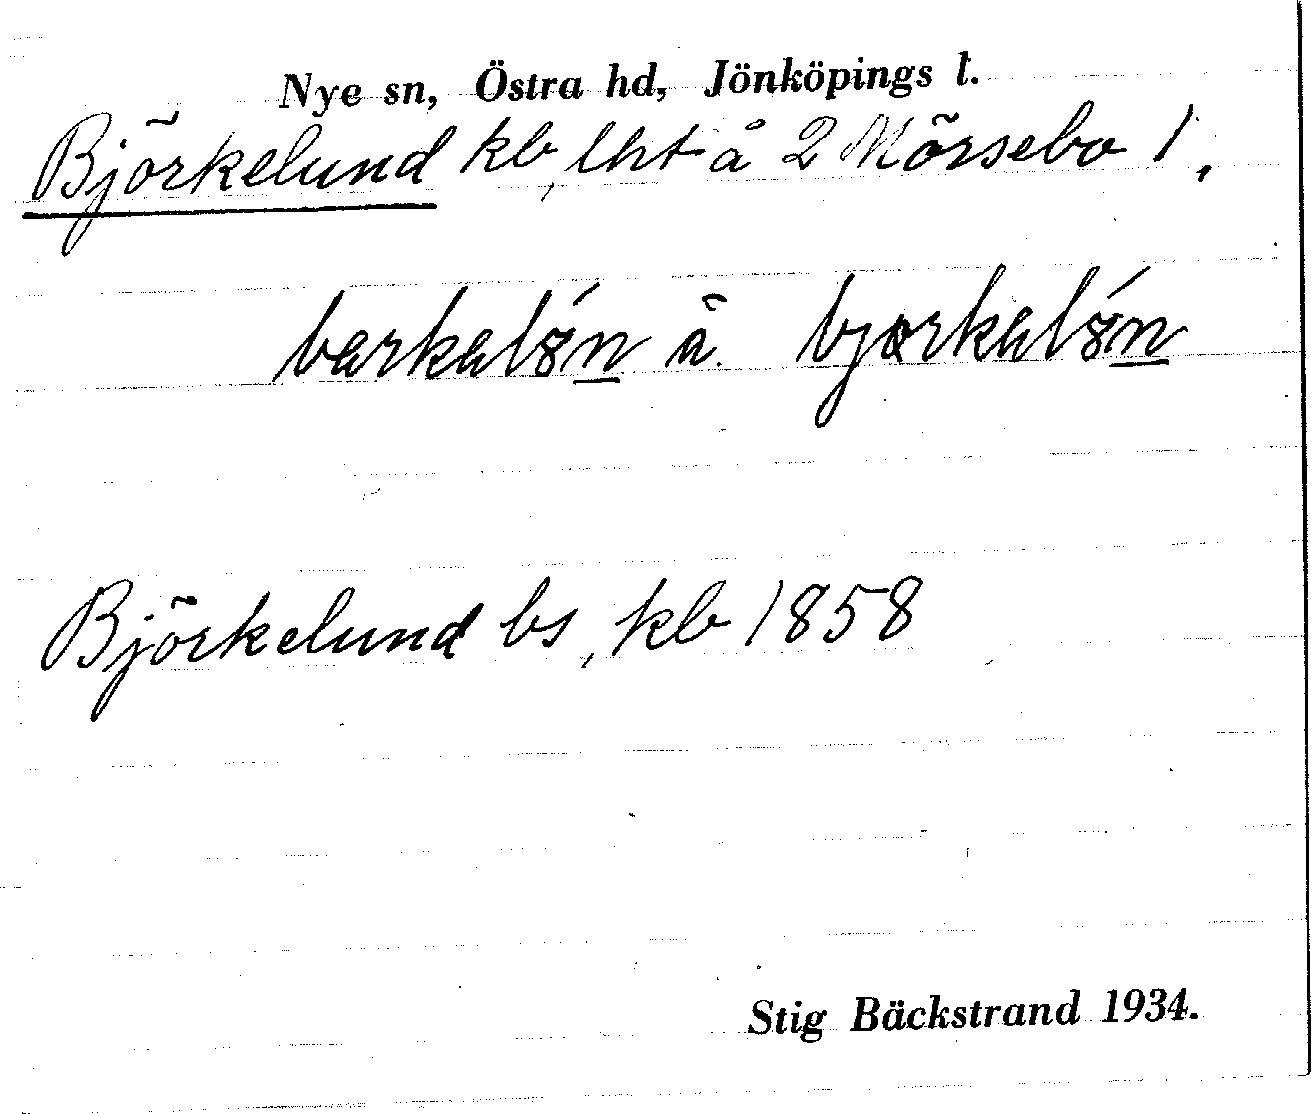 Nye sn, Östra hd, Jönköpings l.
Björkelund kb, lht å 2 Mörsebo 1,
bærkəlɞ́n å. bjɶrkəlɞ́n
Björkelund bs, kb 1858
Stig Bäckstrand 1934.